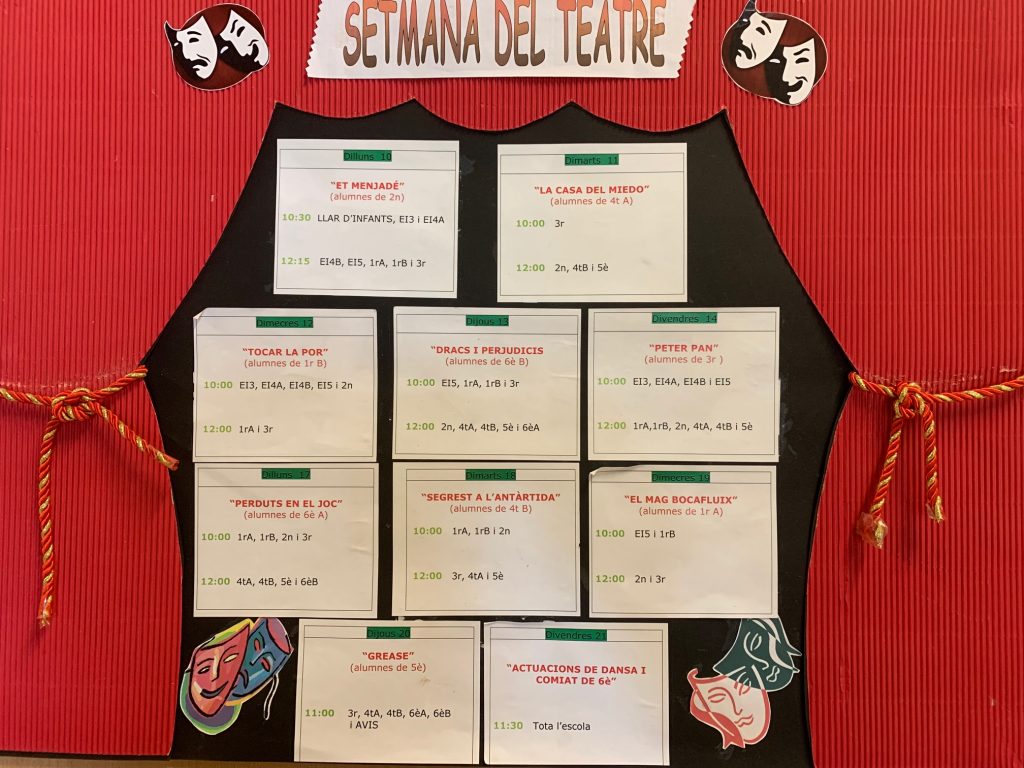 SETMANA DEL TEATRE
Dilluns 10
"ET MENJADÉ"
(alumnes de 2n)
10:30 LLAR D'INFANTS, EI3 i EI4A
12:15 EI4B, EI5, 1rA, 1rB i 3r
Dimarts 11
"LA CASA DEL MIEDO"
(alumnes de 4t A)
10:00 3r
12:00 2n, 4tB i 5è
Dimecres 12
"TOCAR LA POR"
(alumnes de 1r B)
10:00 EI3, EI4A, EI4B, EI5 i 2n
12:00 1rA i 3r
Dijous 13
"DRACS I PERJUDICIS
(alumnes de 6è B)
10:00 EI5, 1rA, 1rB i 3r
12:00 2n, 4tA, 4tB, 5è i 6èA
Divendres 14
"PETER PAN"
(alumnes de 3r )
10:00 EI3, EI4A, EI4B i EI5
12:00 1rA,1rB, 2n, 4tA, 4tB i 5è
Dilluns 17
"PERDUTS EN EL JOC"
(alumnes de 6è A)
10:00 1rA, 1rB, 2n i 3r
12:00 4tA, 4tB, 5è i 6èB
Dimarts 18
"SEGREST A L'ANTÀRTIDA"
(alumnes de 4t B)
10:00 1rA, 1rB i 2n
12:00 3r, 4tA i 5è
Dimecres 19
"EL MAG BOCAFLUIX"
(alumnes de 1r A)
10:00 EI5 i 1rB
12:00 2n i 3r
Dijous 20
"GREASE"
(alumnes de 5è)
11:00 3r, 4tA, 4tB, 6èA, 6èB
i AVIS
Divendres 21
"ACTUACIONS DE DANSA I
COMIAT DE 6è"
11:30 Tota l'escola